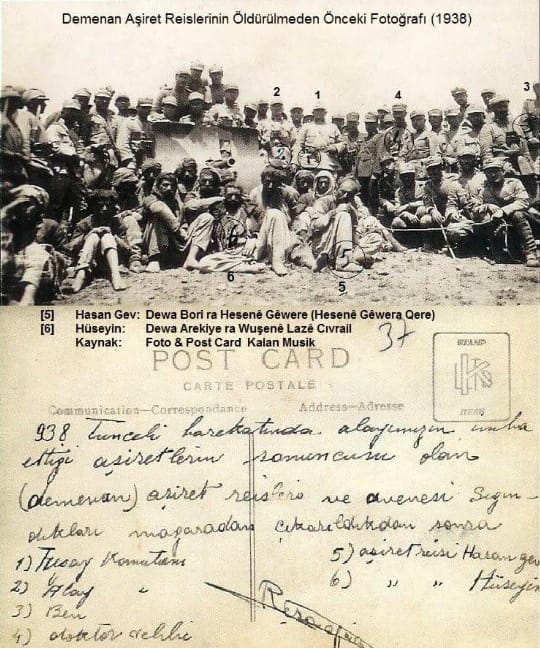 Demenan Aşiret Reislerinin Öldürülmeden Önceki Fotoğrafı (1938)
2 1 4 3
6 5
[5] Hasan Gev: Dewa Bori ra Hesenê Gêwere (Hesenê Gêwera Qere)
[6] Hüseyin: Dewa Arekiye ra Wuşenê Lazê Cıvrail
Kaynak: Foto & Post Card Kalan Musik
37
POST CARD
CARTE POSTALE
STAMP
HERE
Communication-Correspondance Address-Adresse
938 Tunceli harekatında alayımızın imha
ettiği aşiretlerin sonuncusu olan
(demenan) aşiret reisleri ve avenesi Sığın-
dıkları mağaradan çıkarıldıkdan sonra
1) Tugay Komutanı
2) Alay "
3) Ben
4) doktor vehbi
5) aşiret reisi Hasan gev
6) " " Hüseyin